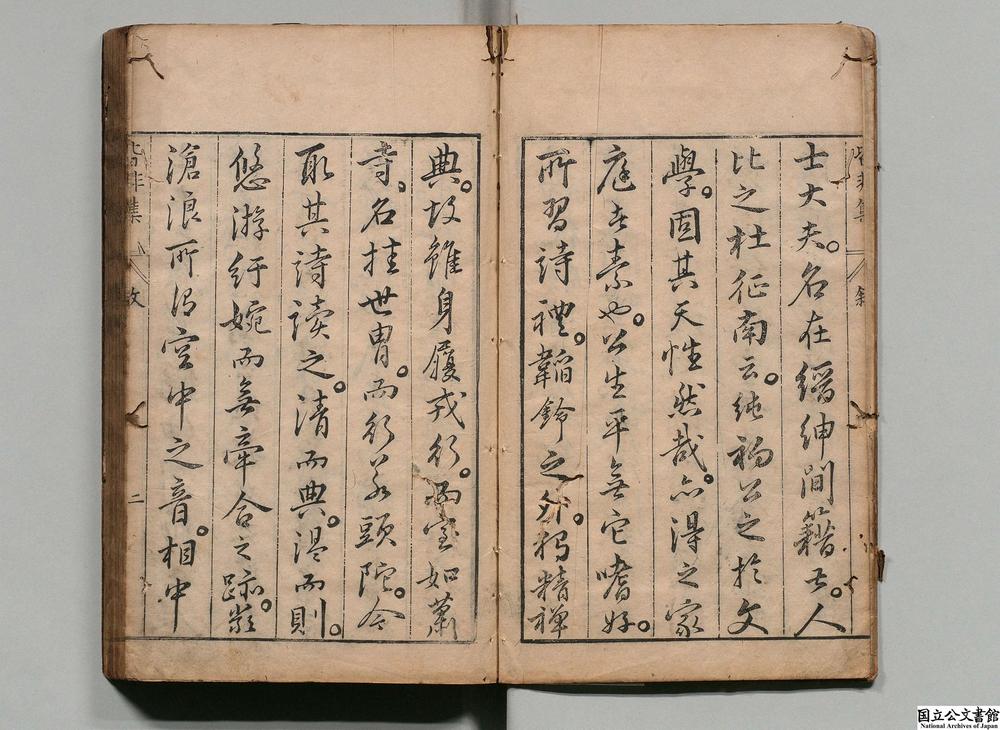 士大夫。名在縉紳間籍甚。人
比之杜征南云。純物公之於文
學。固其天性然哉。亦得之家
庭者素也。公生平無它嗜好。
所習詩禮。韜鈐之外。獨精禪
典。故雖身履戎行。室如蕭
寺。名挂世胄。而行若頭陀。今
取其詩讀之。清而典。澤而則。
悠游紆婉而無牽合之跡。嚴
滄浪所謂空中之音。相中
二
国立公文書館
National Archives of Japan